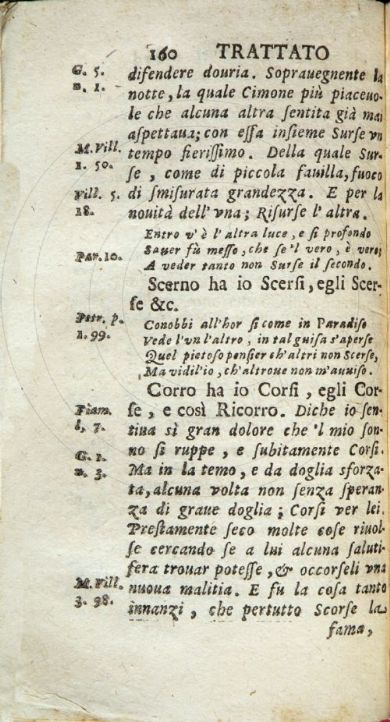 160 TRATTATO
G. 5. difendere douria. Soprauegnente la
n. 1. notte, la quale Cimone più piaceuo-
le che alcuna altra ſentita già mai
aſpettaua; con eſſa inſieme Surſe vn
M. Vill. tempo fieriſſimo. Della quale Sur-
1. 50. ſe, come di piccola fauilla, fuoco
Vill. 5. di ſmiſurata grandezza. E per la
18. nouità dell'vna; Riſurſe l'altra.
Entro v'è l'altra luce, e ſi profondo
Sauer fù meſſo, che ſe'l vero, è vero;
Par. 10. A veder tanto non Surſe il ſecondo.
Scerno ha io Scerſi, egli Scer-
ſe &c.
Petr. p. Conobbi all'hor ſi come in Paradiſo
1. 99. Vede l'vn l'altro, in tal guiſa s'aperſe
Quel pietoſo penſier ch'altri non Scerſe,
Ma vidil'io, ch'altroue non m'auuiſo.
Corro ha io Corſi, egli Cor-
Fiam. ſe, e così Ricorro. Diche io ſen-
l. 7. tiua sì gran dolore che'l mio ſon-
no ſi ruppe, e ſubitamente Corſi.
G. 2. Ma in la temo, e da doglia sforza-
n. 3. ta, alcuna volta non ſenza ſperan-
za di graue doglia; Corſi ver lei.
Preſtamente ſeco molte coſe riuol-
ſe cercando ſe a lui alcuna ſaluti-
fera trouar poteſſe, & occorſeli vna
M. Vill. nuoua malitia. E fu la coſa tanto
3. 98. innanzi, che pertutto Scorſe la
fama,